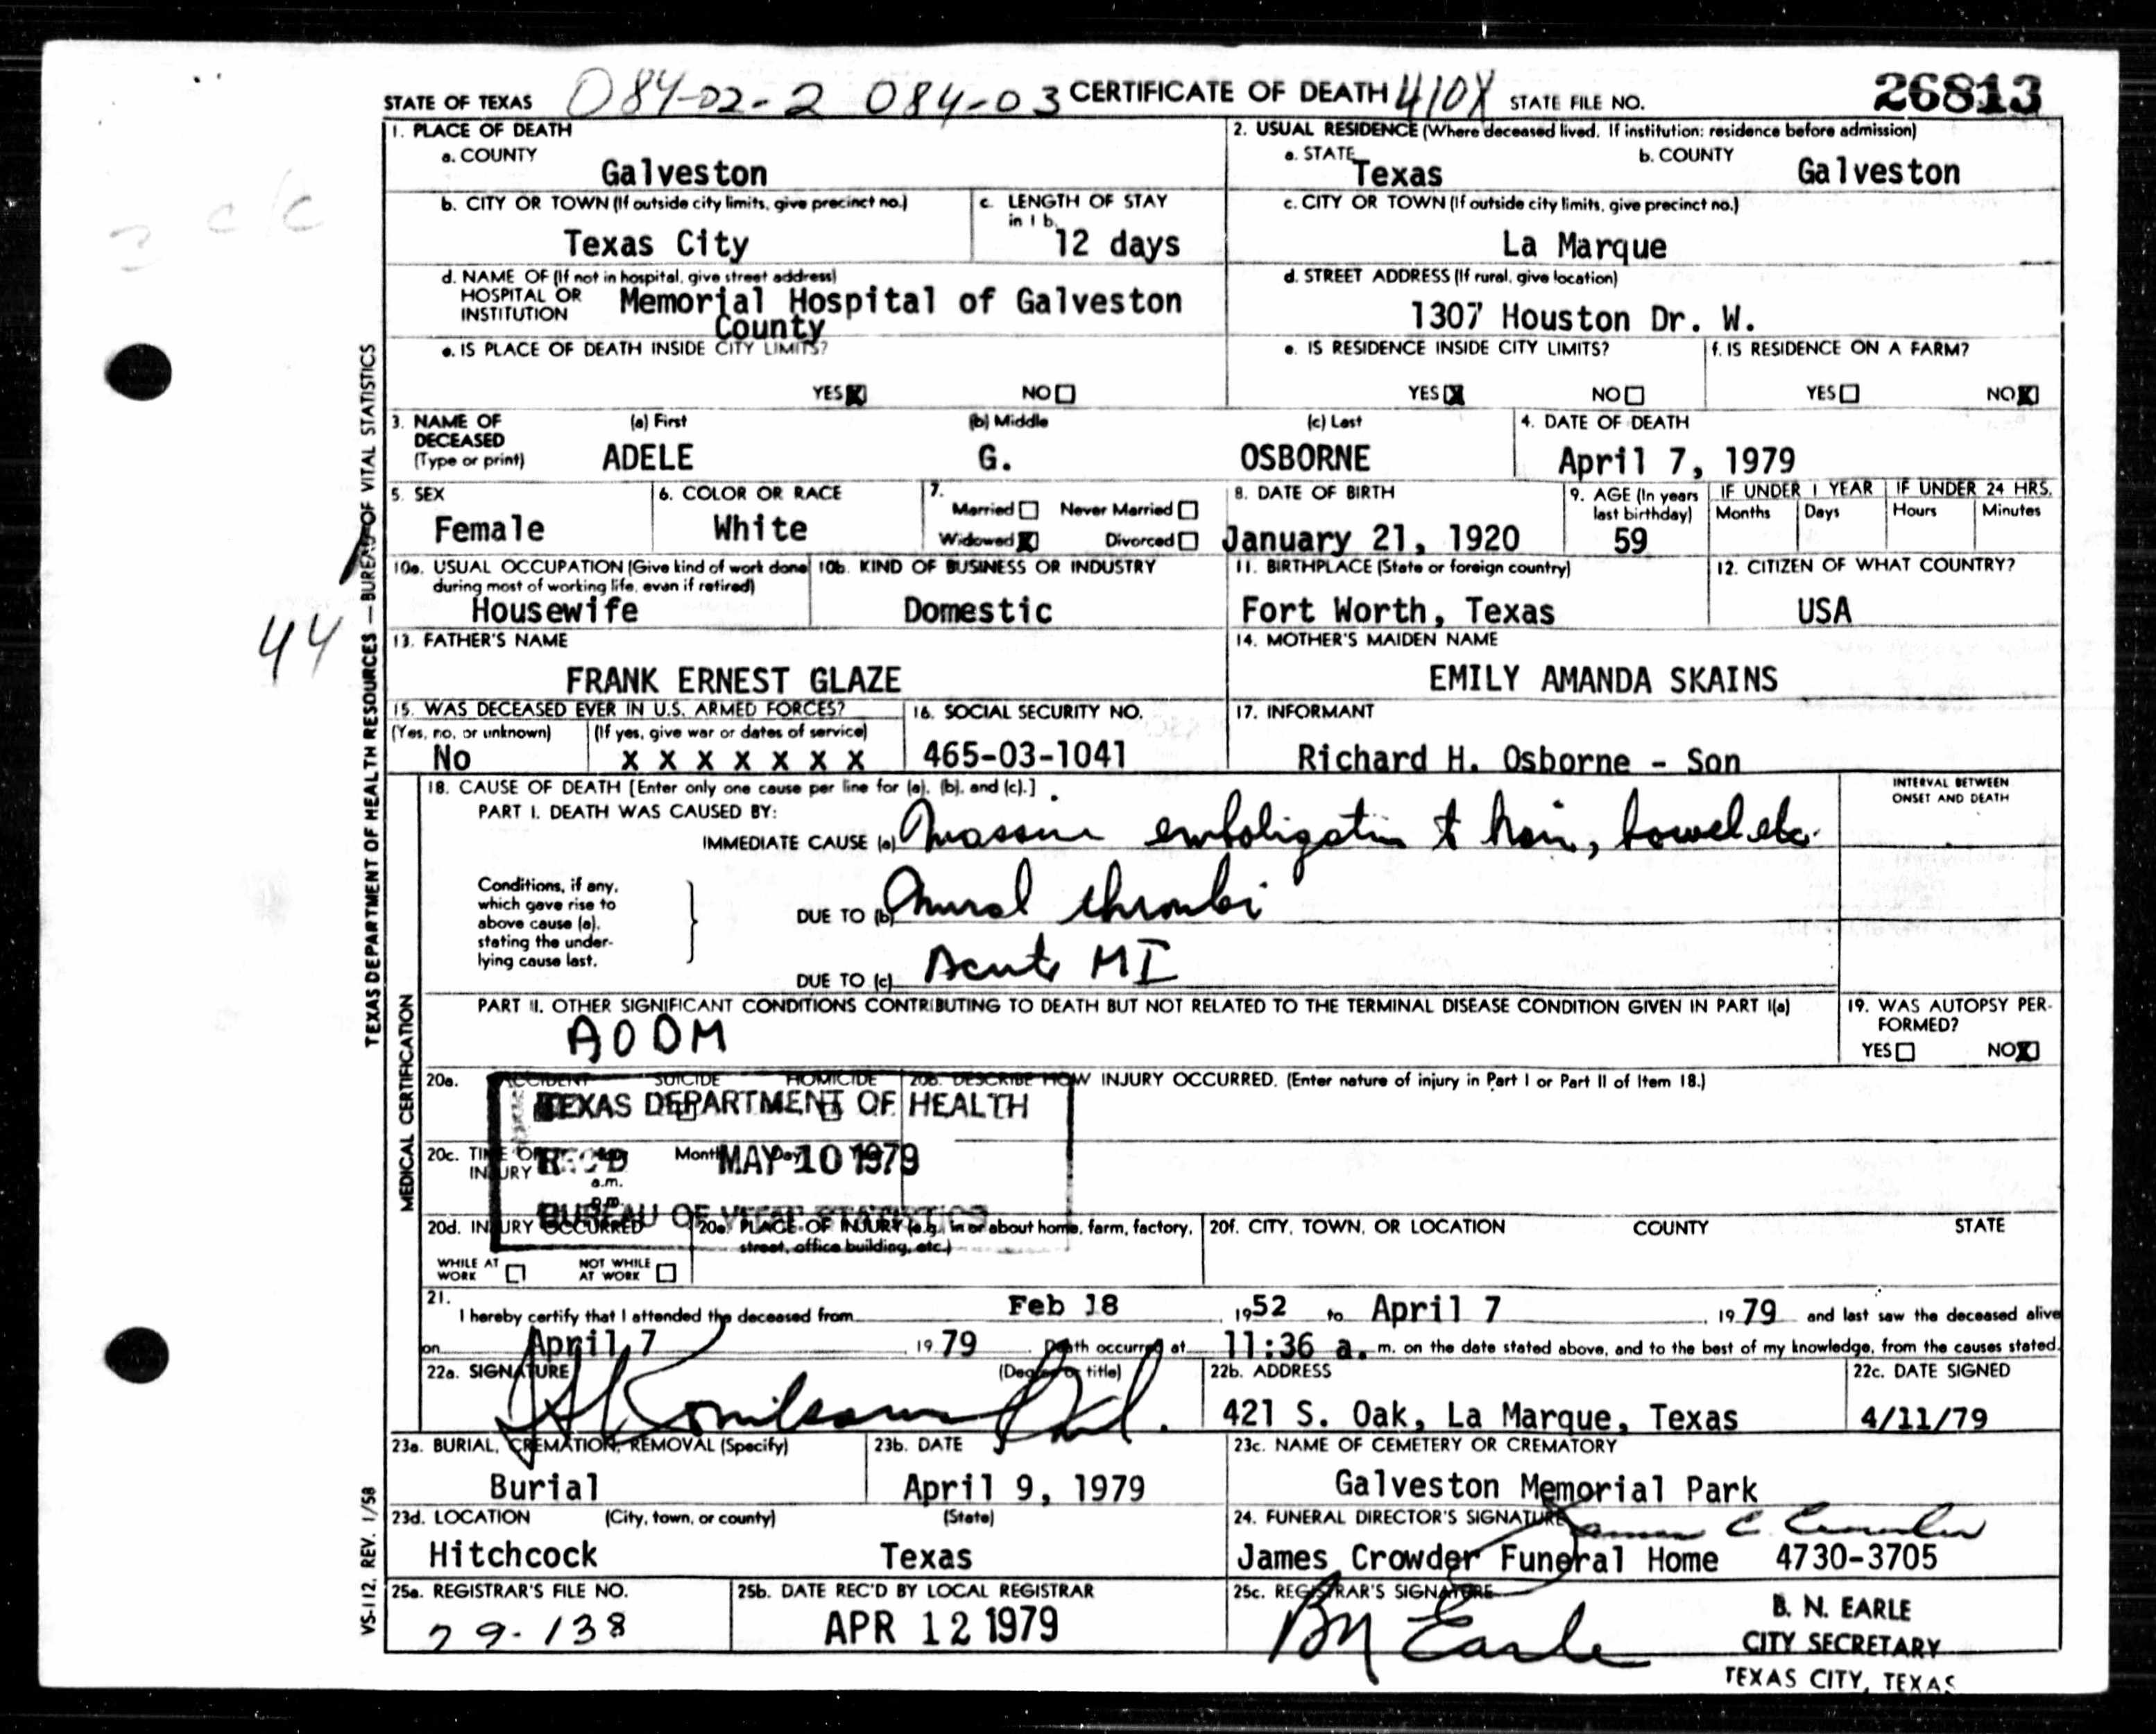 STATE OF TEXAS 084-02-2 084-03 CERTIFICATE OF DEATH 410X STATE FILE NO. 26813
1. PLACE OF DEATH
a. COUNTY
Galveston
2. USUAL RESIDENCE (Where deceased lived. If institution: residence before admission)
a. STATE Texas b. COUNTY Galveston
b. CITY OR TOWN (If outside city limits, give precinct no.)
Texas City
c. LENGTH OF STAY
in 1 b.
12 days
c. CITY OR TOWN (If outside city limits, give precinct no.)
La Marque
d. NAME OF (If not in hospital, give street address)
HOSPITAL OR
INSTITUTION
Memorial Hospital of Galveston
County
d. STREET ADDRESS (If rural, give location)
1307 Houston Dr. W.
e. IS PLACE OF DEATH INSIDE CITY LIMITS?
YES X NO
e. IS RESIDENCE INSIDE CITY LIMITS?
YES X NO
f. IS RESIDENCE ON A FARM?
YES NO X
3. NAME OF
DECEASED
(Type or print)
(a) First (b) Middle (c) Last
ADELE G. OSBORNE
4. DATE OF DEATH
April 7, 1979
5. SEX
Female
6. COLOR OR RACE
White
7.
Married Never Married
Widowed X Divorced
8. DATE OF BIRTH
January 21, 1920
9. AGE (In years
last birthday)
59
IF UNDER 1 YEAR
Months Days
IF UNDER 24 HRS.
Hours Minutes
10a. USUAL OCCUPATION (Give kind of work done
during most of working life, even if retired)
Housewife
10b. KIND OF BUSINESS OR INDUSTRY
Domestic
11. BIRTHPLACE (State or foreign country)
Fort Worth, Texas
12. CITIZEN OF WHAT COUNTRY?
USA
44
13. FATHER'S NAME
FRANK ERNEST GLAZE
14. MOTHER'S MAIDEN NAME
EMILY AMANDA SKAINS
15. WAS DECEASED EVER IN U.S. ARMED FORCES?
(Yes, no, or unknown) (If yes, give war or dates of service)
No X X X X X X X
16. SOCIAL SECURITY NO.
465-03-1041
17. INFORMANT
Richard H. Osborne - Son
18. CAUSE OF DEATH [Enter only one cause per line for (a), (b), and (c).]
INTERVAL BETWEEN
ONSET AND DEATH
PART I. DEATH WAS CAUSED BY:
IMMEDIATE CAUSE (a) Massive bowel etc.
Conditions, if any,
which gave rise to
above cause (a),
stating the under-
lying cause last.
DUE TO (b) Mural thrombi
DUE TO (c) Acute MI
PART II. OTHER SIGNIFICANT CONDITIONS CONTRIBUTING TO DEATH BUT NOT RELATED TO THE TERMINAL DISEASE CONDITION GIVEN IN PART I(a)
AODM
19. WAS AUTOPSY PER-
FORMED?
YES NO X
20a. ACCIDENT SUICIDE HOMICIDE
20b. DESCRIBE HOW INJURY OCCURRED. (Enter nature of injury in Part I or Part II of Item 18.)
TEXAS DEPARTMENT OF HEALTH
REC'D MAY 10 1979
BUREAU OF VITAL STATISTICS
20c. TIME OF
INJURY
Month Day
a.m.
p.m.
20d. INJURY OCCURRED
WHILE AT
WORK
NOT WHILE
AT WORK
20e. PLACE OF INJURY (e.g., in or about home, farm, factory,
street, office building, etc.)
20f. CITY, TOWN, OR LOCATION COUNTY STATE
21.
I hereby certify that I attended the deceased from Feb 18, 1952 to April 7, 1979 and last saw the deceased alive
on April 7, 1979. Death occurred at 11:36 a. m. on the date stated above, and to the best of my knowledge, from the causes stated.
22a. SIGNATURE (Degree or title)
22b. ADDRESS
421 S. Oak, La Marque, Texas
22c. DATE SIGNED
4/11/79
23a. BURIAL, CREMATION, REMOVAL (Specify)
Burial
23b. DATE
April 9, 1979
23c. NAME OF CEMETERY OR CREMATORY
Galveston Memorial Park
23d. LOCATION (City, town, or county) (State)
Hitchcock Texas
24. FUNERAL DIRECTOR'S SIGNATURE James C. Crowder
James Crowder Funeral Home 4730-3705
25a. REGISTRAR'S FILE NO.
79-138
25b. DATE REC'D BY LOCAL REGISTRAR
APR 12 1979
25c. REGISTRAR'S SIGNATURE
BN Earle
B. N. EARLE
CITY SECRETARY
TEXAS CITY, TEXAS
TEXAS DEPARTMENT OF HEALTH RESOURCES — BUREAU OF VITAL STATISTICS
MEDICAL CERTIFICATION
VS-112, REV. 1/58